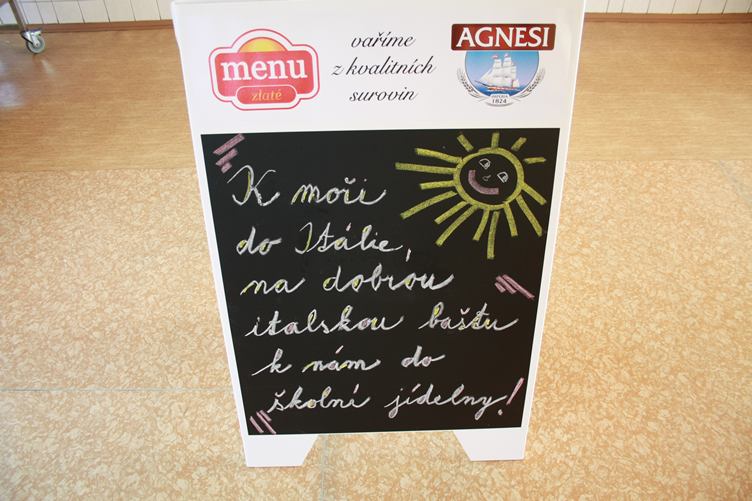 menu
zlaté
vaříme
z kvalitních
surovin
AGNESI
1824
K moři
do Itálie,
na dobrou
italskou baštu
k nám do
školní jídelny!